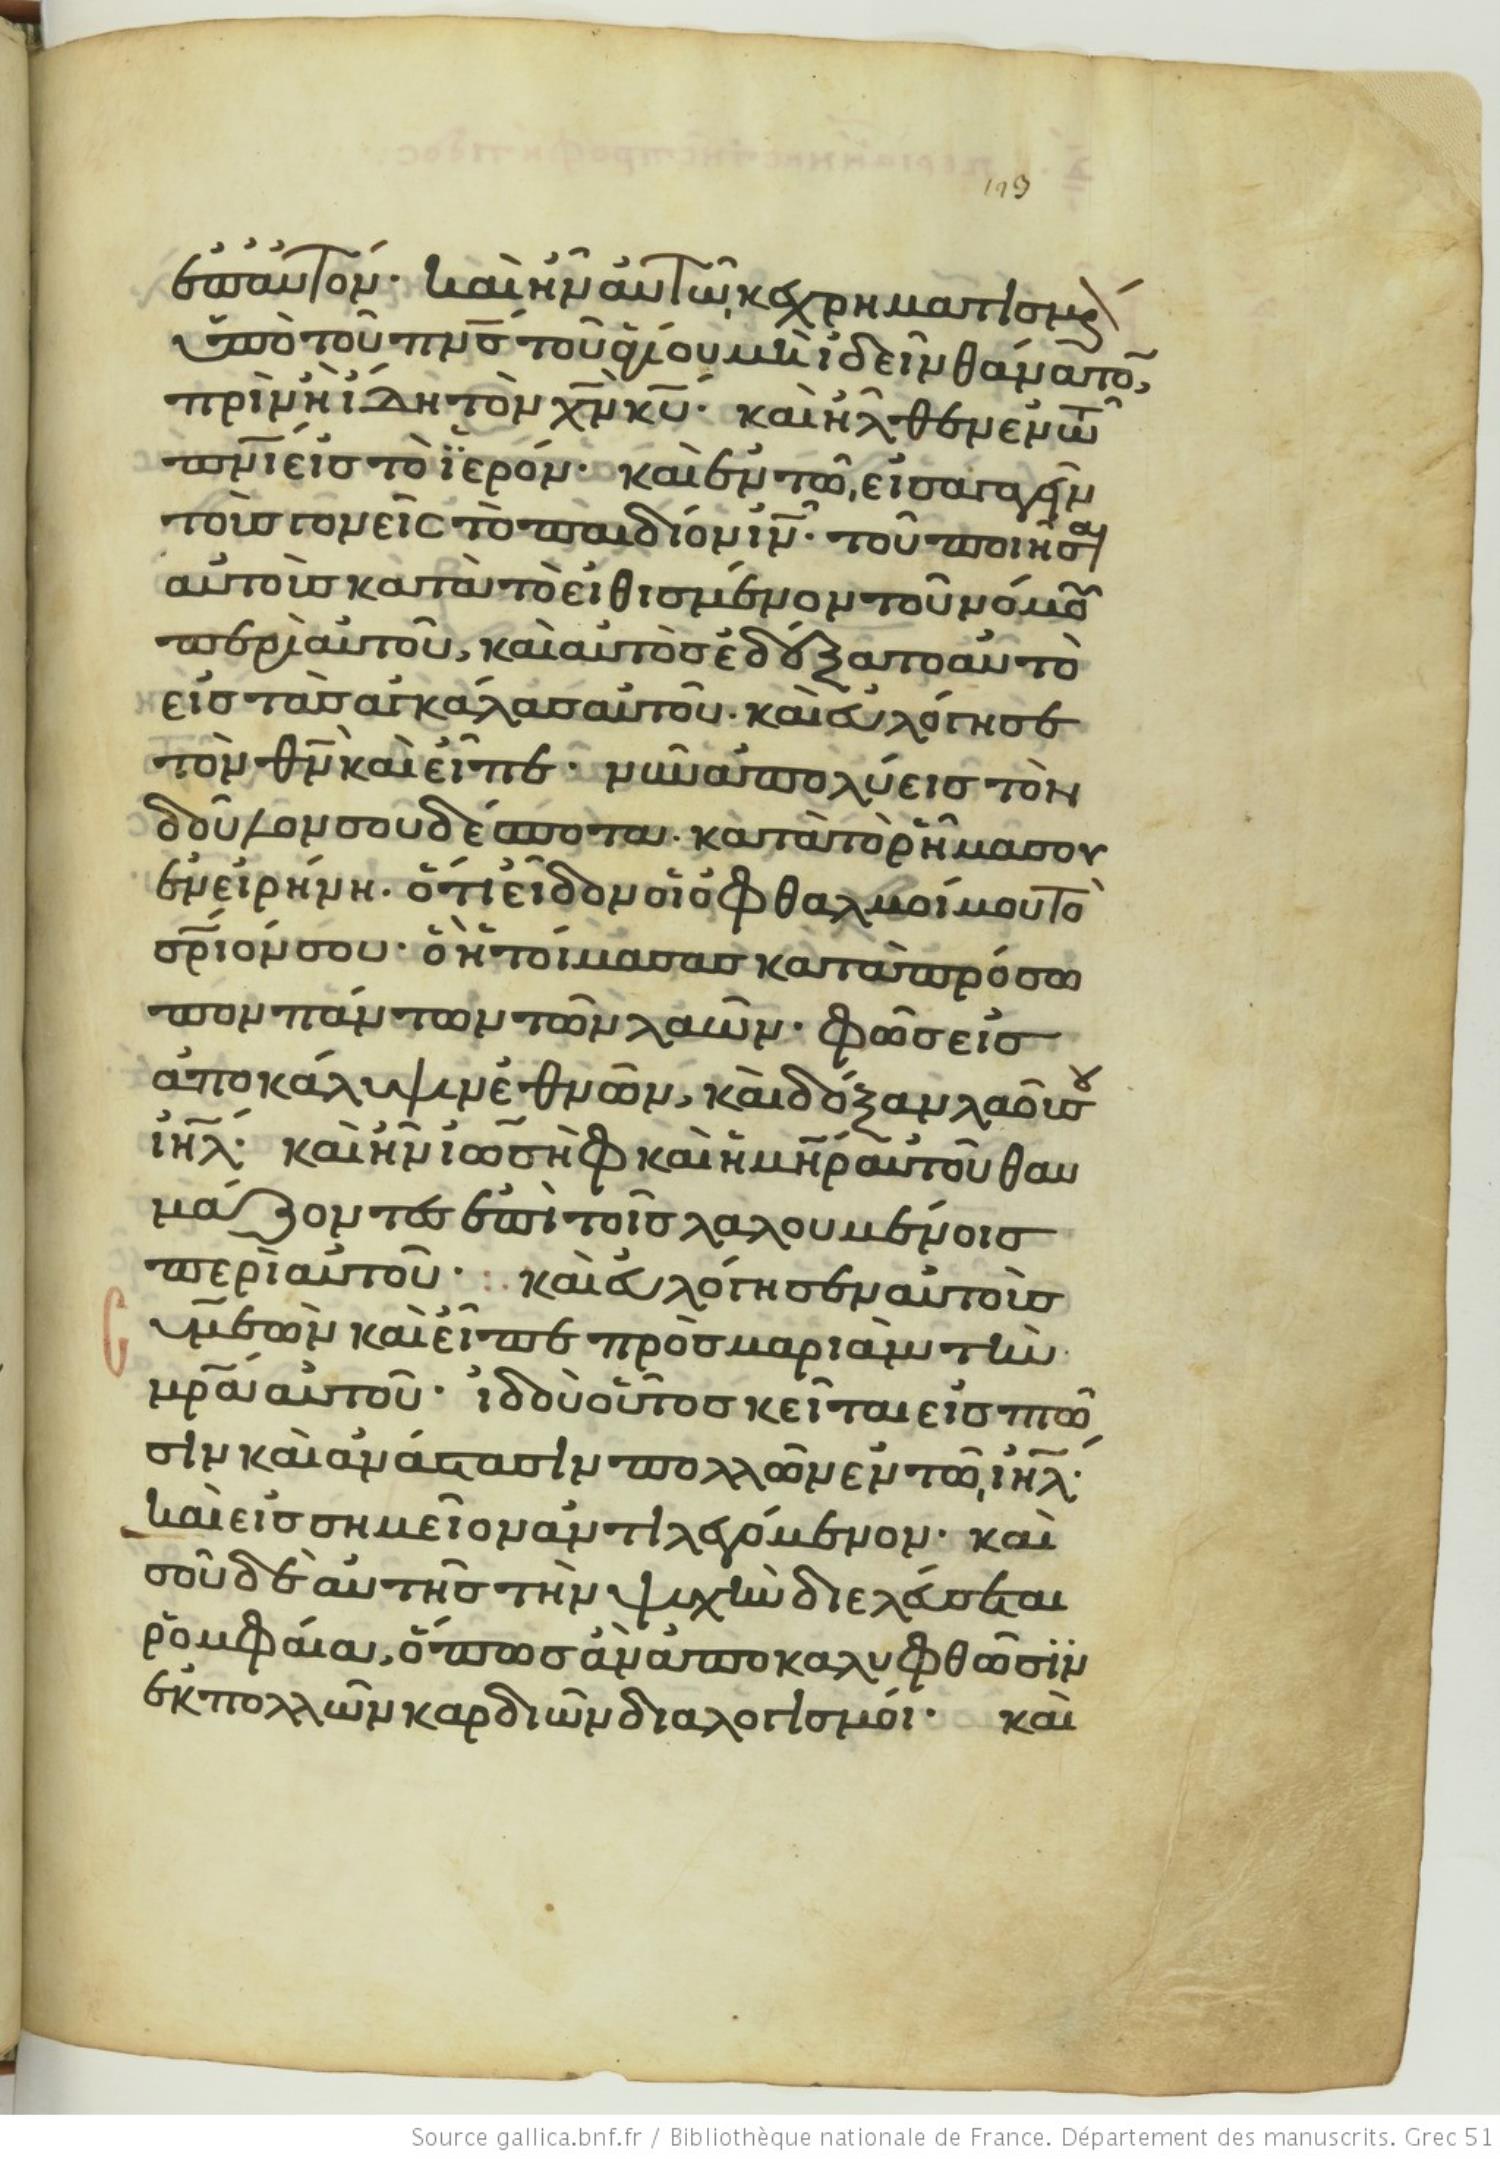 119
ἐπ' αὐτόν· καὶ ἦν αὐτῶ, κεχρηματισμένον
ὑπὸ τοῦ πνσ τοῦ ἁγίου μὴ ἰδεῖν θάνατον,
πρὶν ἢ ἴδη τὸν χν κυ· καὶ ἦλθεν ἐν τῶ
πνι εἰς τὸ ϊερόν· καὶ ἐν τῶ, εἰσαγαγεῖν
τοὺς γονεῖς τὸ παιδίον ιν· τοῦ ποιῆσαι
αὐτοὺς κατὰ τὸ εἰθισμένον τοῦ νόμου
περὶ αὐτοῦ, καὶ αὐτὸς ἐδέξατο αὐτὸ
εἰς τὰς ἀγκάλας αὐτοῦ· καὶ εὐλόγησε
τὸν θν καὶ εἶπε· νῦν ἀπολύεις τὸν
δοῦλον σου δέσποτα· κατὰ τὸ ῥῆμα σου
ἐν εἰρήνη· ὅτι εἶδον οἱ ὀφθαλμοί μου τὸ
σριόν σου· ὃ ἡτοίμασας κατὰ πρόσω
πον πάντων τῶν λαῶν· φῶς εἰς
ἀποκάλυψιν ἐθνῶν, καὶ δόξαν λαοῦ σου
ιηλ· καὶ ἦν ἰωσὴφ καὶ ἡ μηρ αὐτοῦ θαυ
μάζοντες ἐπὶ τοῖς λαλουμένοις
περὶ αὐτοῦ· καὶ εὐλόγησεν αὐτοὺς
συμεὼν καὶ εἶπε πρὸς μαριὰμ τὴν
μρα αὐτοῦ· ἰδοὺ οὗτος κεῖται εἰς πτῶ
σιν καὶ ἀνάστασιν πολλῶν ἐν τῶ, ιηλ·
καὶ εἰς σημεῖον ἀντιλεγόμενον· καὶ
σοῦ δὲ αὐτῆς τὴν ψυχὴν διελεύσεται
ῥομφαία, ὅπως ἂν ἀποκαλυφθῶσϊν
ἐκ πολλῶν καρδιῶν διαλογισμοί· καὶ
Source gallica.bnf.fr / Bibliothèque nationale de France. Département des manuscrits. Grec 51